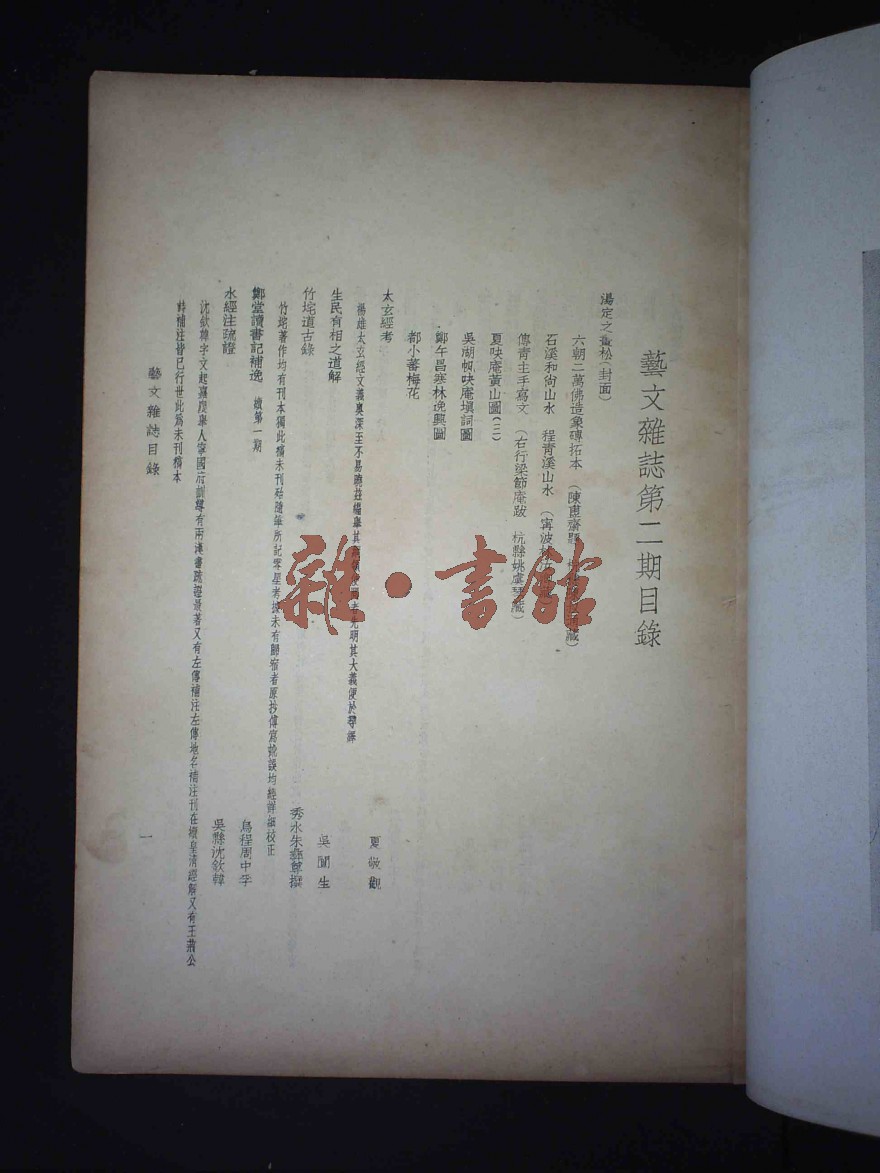 藝文雜誌第二期目錄
湯定之畫松(封面)
六朝二萬佛造象磚拓本 (陳 藏)
石溪和尙山水 程靑溪山水 (寗波
傅靑主手寫文 (右行梁節庵跋 杭縣姚虞琴藏)
夏吷庵黃山圖(三)
吳湖帆吷庵塡詞圖
鄭午昌寒林逸興圖
都小蕃梅花
太玄經考 夏敬觀
揚雄太玄經文義奧深至不易曉茲編舉其 者先明其大義便於尋繹
生民有相之道解 吳闓生
竹垞道古錄 秀水朱彝尊撰
竹垞著作均有刊本獨此稿未刊殆隨筆所記零星考據未有歸宿者原抄傳寫訛誤均經詳細校正
鄭堂讀書記補逸 續第一期 烏程周中孚
水經注疏證 吳縣沈欽韓
沈欽韓字文起嘉慶舉人寧國府訓導有兩漢書疏證最著又有左傳補注左傳地名補注刊在續皇淸經解又有王荊公
詩補注皆已行世此爲未刊稿本
藝文雜誌目錄
一
雜·書館